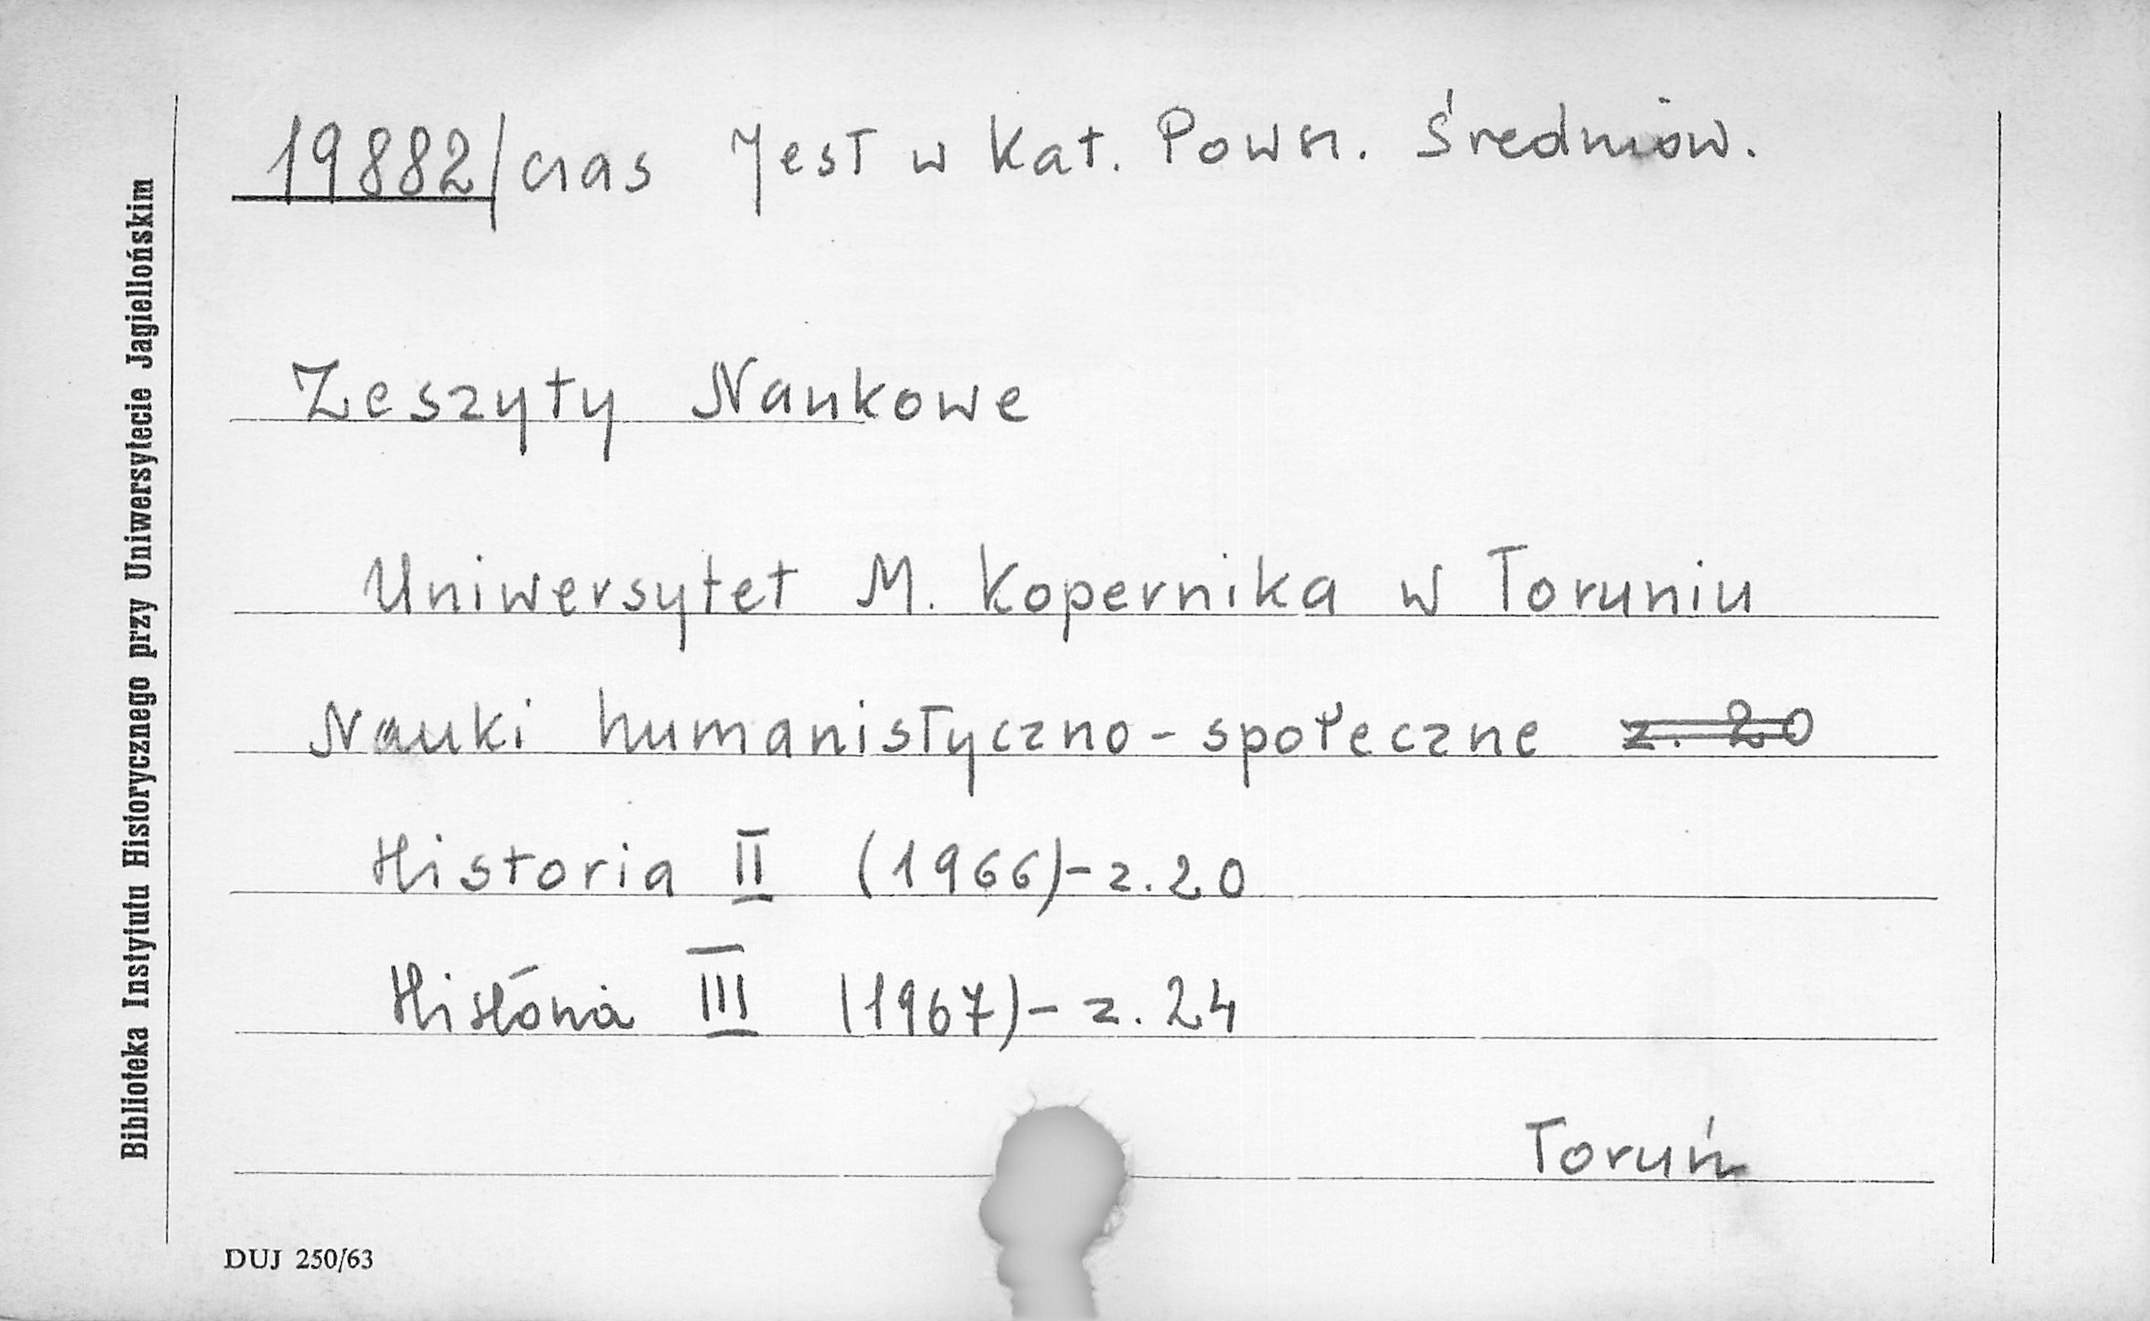 19882/czas Jest w Kat. Powsz. Średniow.
Zeszyty Naukowe
Uniwersytet M. Kopernika w Toruniu
Nauki humanistyczno-społeczne z. 20
Historia II (1966)-z.20
Historia III (1967)-z.24
Toruń
DUJ 250/63
Biblioteka Instytutu Historycznego przy Uniwersytecie Jagiellońskim